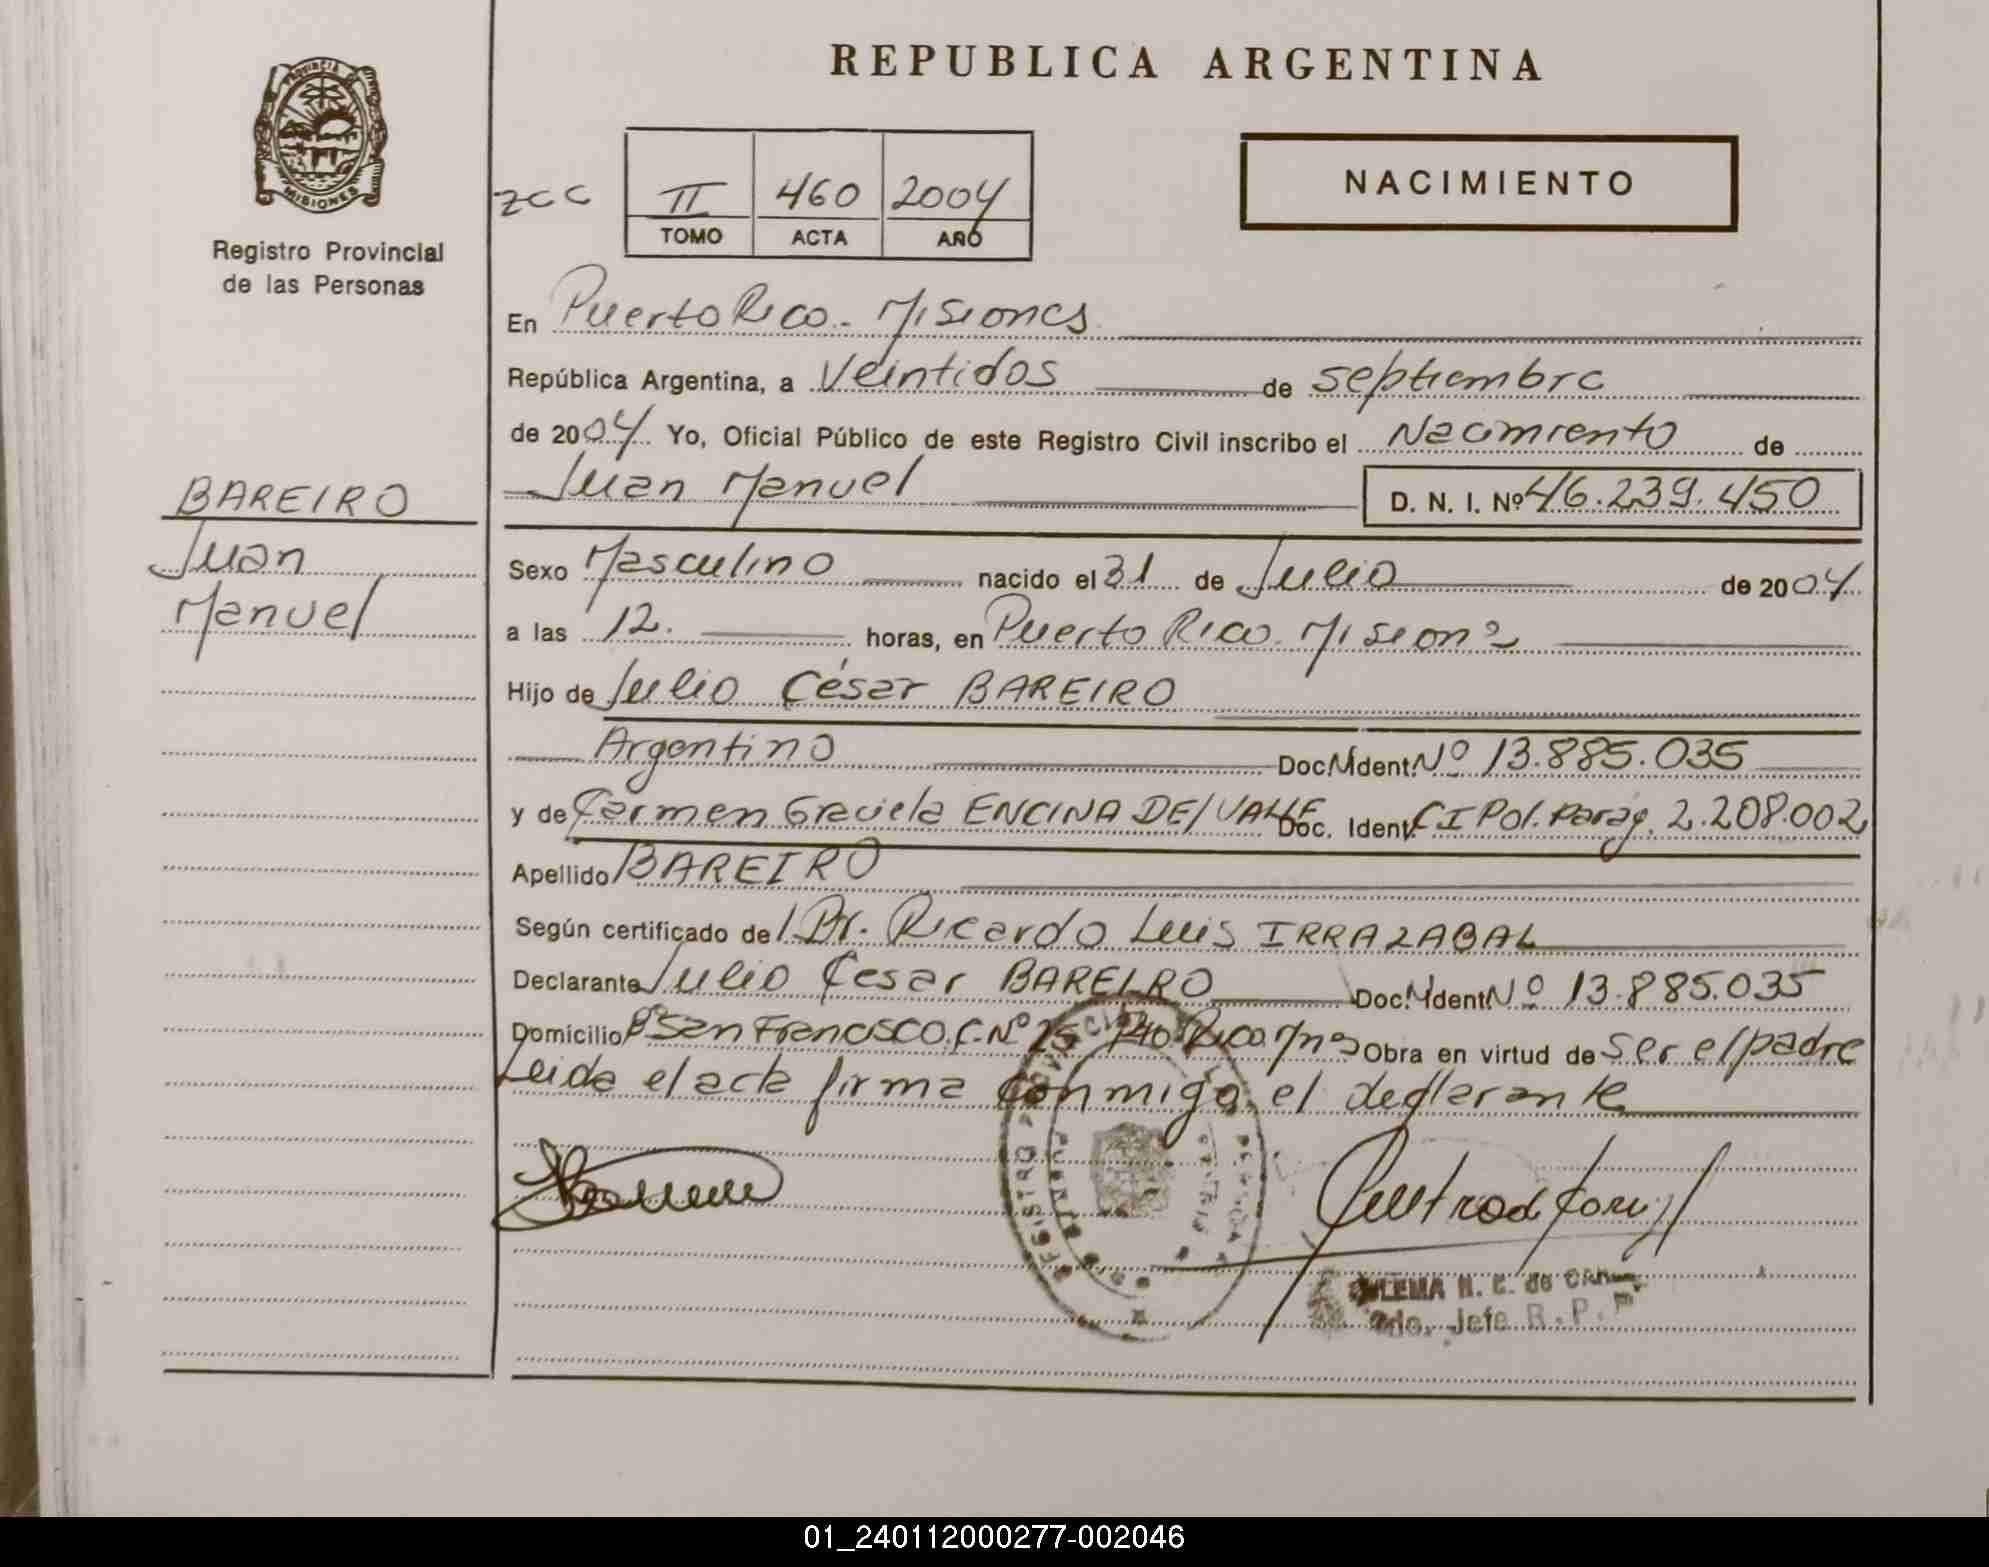 REPUBLICA ARGENTINA
PROVINCIA DE MISIONES
Registro Provincial
de las Personas
ZCC
II 460 2004
TOMO ACTA AÑO
NACIMIENTO
En Puerto Rico - Misiones
República Argentina, a Veintidos de septiembre
de 2004 Yo, Oficial Público de este Registro Civil inscribo el Nacimiento de
Juan Manuel D. N. I. Nº 46.239.450
BAREIRO
Juan
Manuel
Sexo Masculino nacido el 31 de Julio de 2004
a las 12. horas, en Puerto Rico. Misiones
Hijo de Julio César BAREIRO
Argentino Doc. Ident. Nº 13.885.035
y de Carmen Graciela ENCINA DEL VALLE Doc. Ident. CI Pol. Parag. 2.208.002
Apellido BAREIRO
Según certificado del Dr. Ricardo Luis IRRAZABAL
Declarante Julio Cesar BAREIRO Doc. Ident. Nº 13.885.035
Domicilio Bº San Francisco C. Nº 25 Pto. Rico. Mnes Obra en virtud de ser el padre
Leida el acta firma conmigo, el declarante
REGISTRO PROVINCIAL DE LAS PERSONAS
2do. Jefe R.P.P
01_240112000277-002046